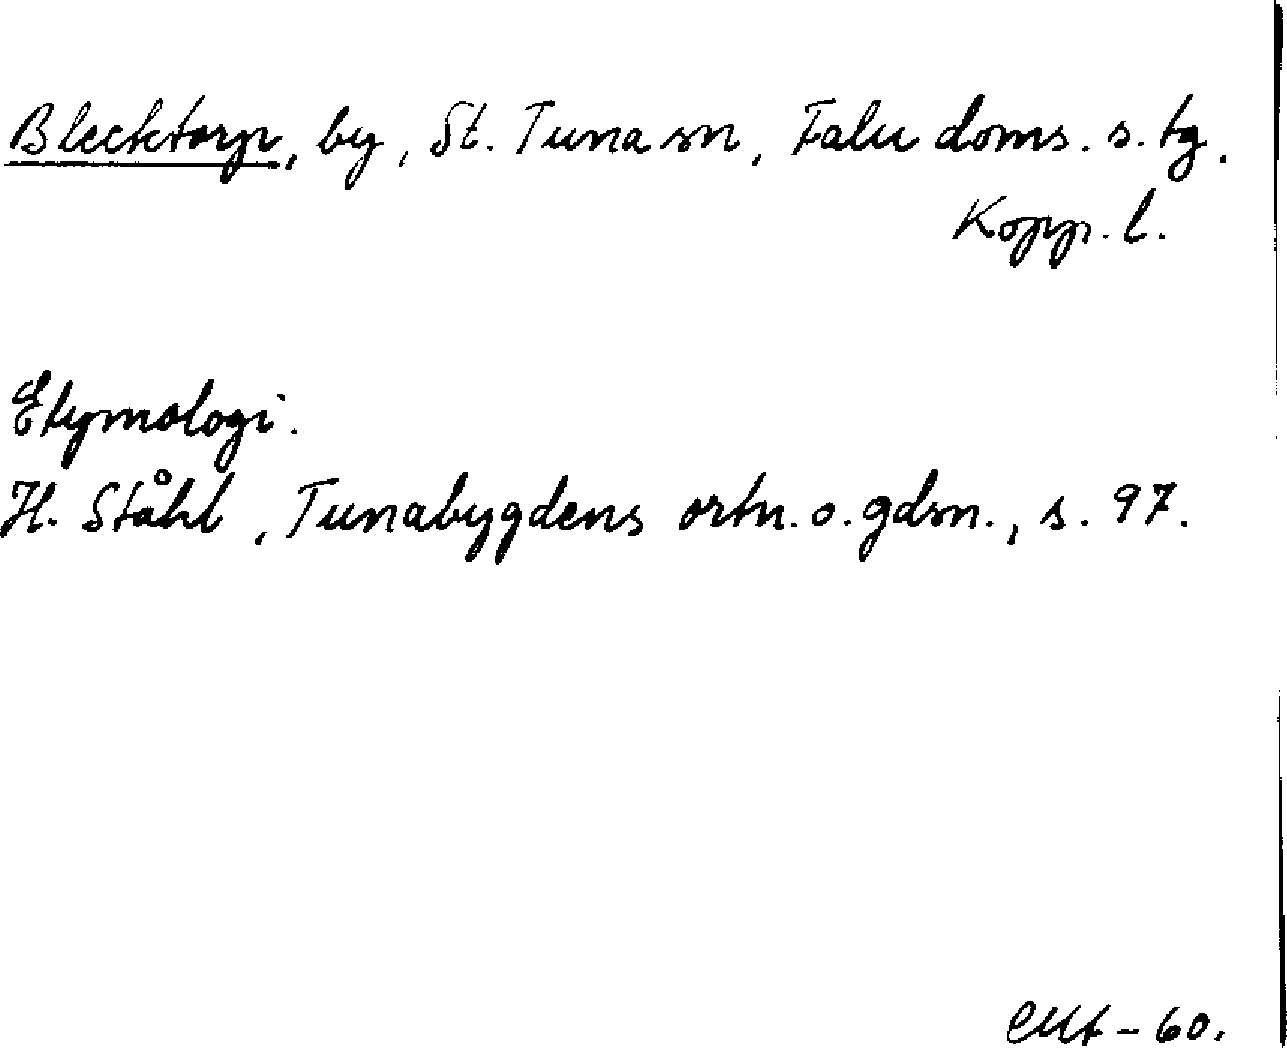 Blecktorp, by, St. Tuna sn, Falu doms. s. tg.
Kopp. l.
Etymologi.
H. Ståhl, Tunabygdens ortn. o. gdsn., s. 97.
- 60.